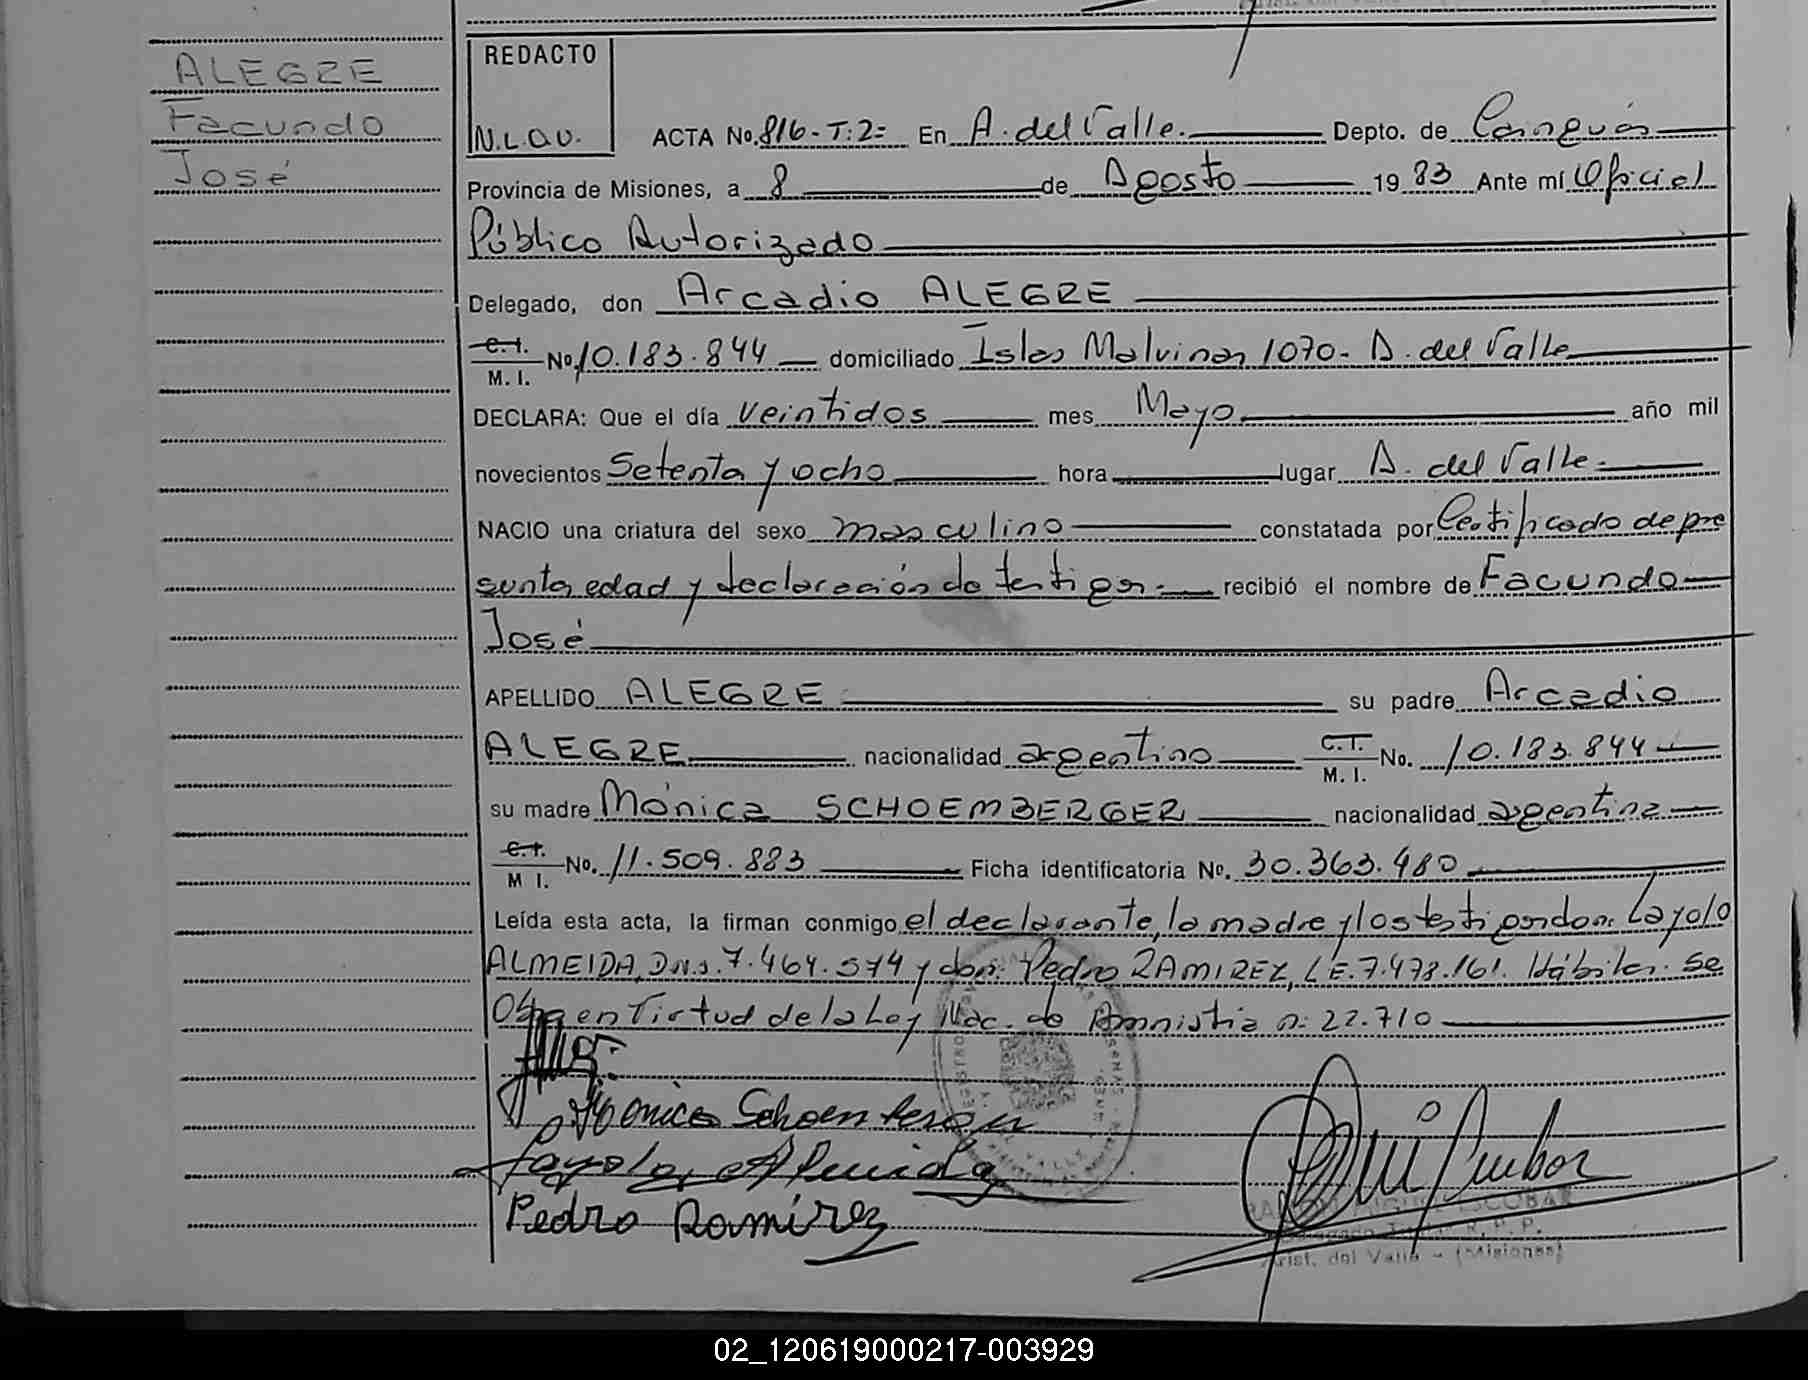 ALEGRE
Facundo
José
REDACTO
N.L.O.V.
ACTA No. 816-T:2= En A. del Valle. Depto. de Cainguás
Provincia de Misiones, a 8 de Agosto 1983 Ante mí Oficial
Público Autorizado
Delegado, don Arcadio ALEGRE
C.I. M. I. No. 10.183.844 domiciliado Islas Malvinas 1070- A. del Valle
DECLARA: Que el día veintidos mes Mayo año mil
novecientos Setenta y ocho hora lugar A. del Valle.
NACIO una criatura del sexo masculino constatada por Certificado de pre
sunta edad y declaración de testigos.- recibió el nombre de Facundo
José
APELLIDO ALEGRE su padre Arcadio
ALEGRE nacionalidad argentino C.I. M. I. No. 10.183.844
su madre Mónica SCHOEMBERGER nacionalidad argentina
C.I. M I. No. 11.509.883 Ficha identificatoria No. 30.363.480
Leída esta acta, la firman conmigo el declarante, la madre y los testigos don: Layolo
ALMEIDA, D.N.I. 7.464.574 y don: Pedro RAMIREZ, L.E. 7.478.161. Hábiles. Se
en Virtud de la Ley Nac. de Amnistia n: 22.710
Monica Schoenberger
Layolo Almeida
Pedro Ramírez
MIGUEL ESCOBAR
R. P. P.
Arist. del Valle - (Misiones)
02_120619000217-003929